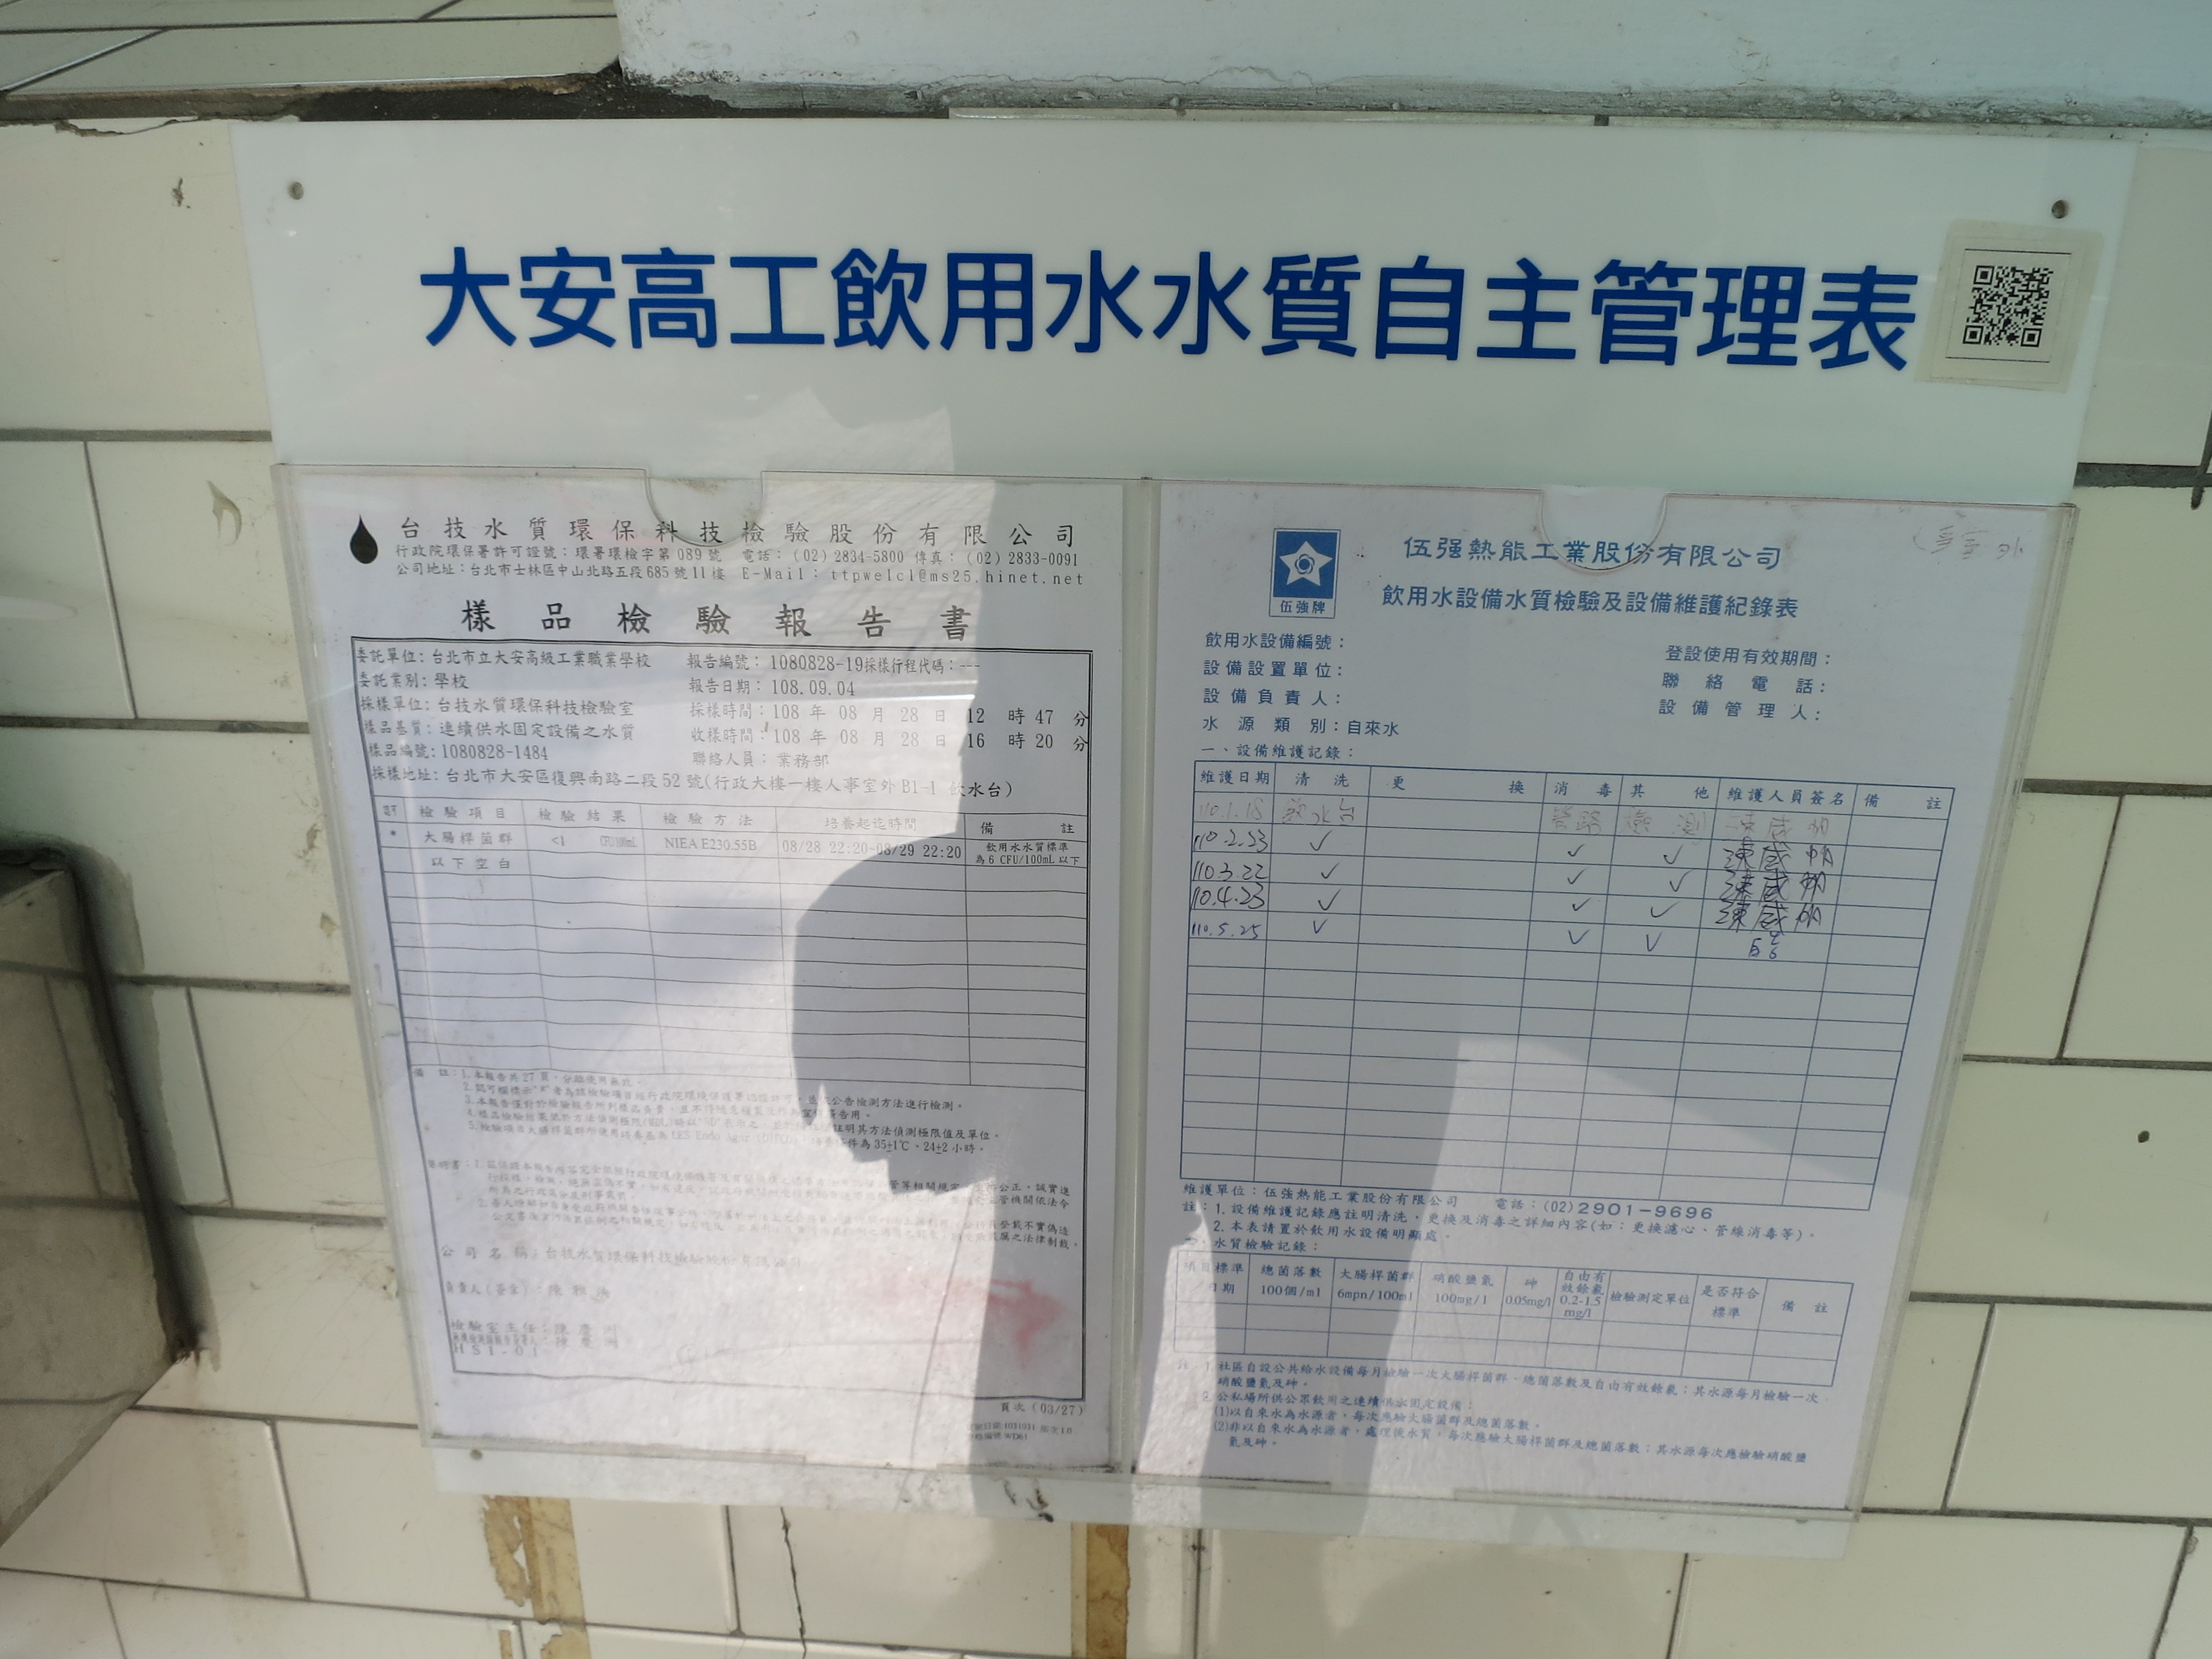 大安高工飲用水水質自主管理表
台技水質環保科技檢驗股份有限公司
行政院環保署許可證號：環署環檢字第 089 號 電話：(02) 2834-5800 傳真：(02) 2833-0091
公司地址：台北市士林區中山北路五段 685 號 11 樓 E-Mail：ttpwelcl@ms25.hinet.net
樣品檢驗報告書
委託單位：台北市立大安高級工業職業學校 報告編號：1080828-19採樣行程代碼：---
委託業別：學校 報告日期：108.09.04
採樣單位：台技水質環保科技檢驗室 採樣時間：108 年 08 月 28 日 12 時 47 分
樣品基質：連續供水固定設備之水質 收樣時間：108 年 08 月 28 日 16 時 20 分
樣品編號：1080828-1484 聯絡人員：業務部
採樣地址：台北市大安區復興南路二段 52 號(行政大樓一樓人事室外 B1-1 飲水台)
檢驗項目 檢驗結果 檢驗方法 培養起迄時間 備註
* 大腸桿菌群 <1 CFU/100mL NIEA E230.55B 08/28 22:20~08/29 22:20 飲用水水質標準
為 6 CFU/100mL 以下
以下空白
備 註：1. 本報告共 27 頁，分離使用無效。
公告檢測方法進行檢測。
證明其方法偵測極限值及單位。
件為 35±1℃、24±2 小時。
公司名稱：台技水質環保科技檢驗股份有限公司
負責人(簽章)：陳雅
檢驗室主任：陳慶
HSI-01
頁次 (03/27)
伍強牌
伍强熱能工業股份有限公司
飲用水設備水質檢驗及設備維護紀錄表
飲用水設備編號：
設備設置單位：
設備負責人：
水源類別：自來水
登設使用有效期間：
聯絡電話：
設備管理人：
一、設備維護記錄：
維護日期 清洗 更換 消毒 其他 維護人員簽名 備註
110.1.18 飲水台 管路 檢測
110.2.23 ✓ ✓ ✓
110.3.22 ✓ ✓ ✓
110.4.23 ✓ ✓ ✓
110.5.25 ✓ ✓ ✓
維護單位：伍強熱能工業股份有限公司 電話：(02)2901-9696
註：1. 設備維護記錄應註明清洗，更換及消毒之詳細內容(如：更換濾心、管線消毒等)。
2. 本表請置於飲用水設備明顯處。
水質檢驗記錄：
項目標準 日期 總菌落數 100個/ml 大腸桿菌群 6mpn/100ml 硝酸鹽氮 100mg/l 砷 0.05mg/l 自由有效餘氯 0.2-1.5 mg/l 檢驗測定單位 是否符合標準 備註
註 1. 社區自設公共給水設備每月檢驗一次大腸桿菌群、總菌落數及自由有效餘氯；其水源每月檢驗一次
硝酸鹽氮及砷。
2. 公私場所供公眾飲用之連續供水固定設備：
(1)以自來水為水源者，每次應驗大腸菌群及總菌落數。
(2)非以自來水為水源者，處理後水質，每次應驗大腸桿菌群及總菌落數；其水源每次應檢驗硝酸鹽
氮及砷。